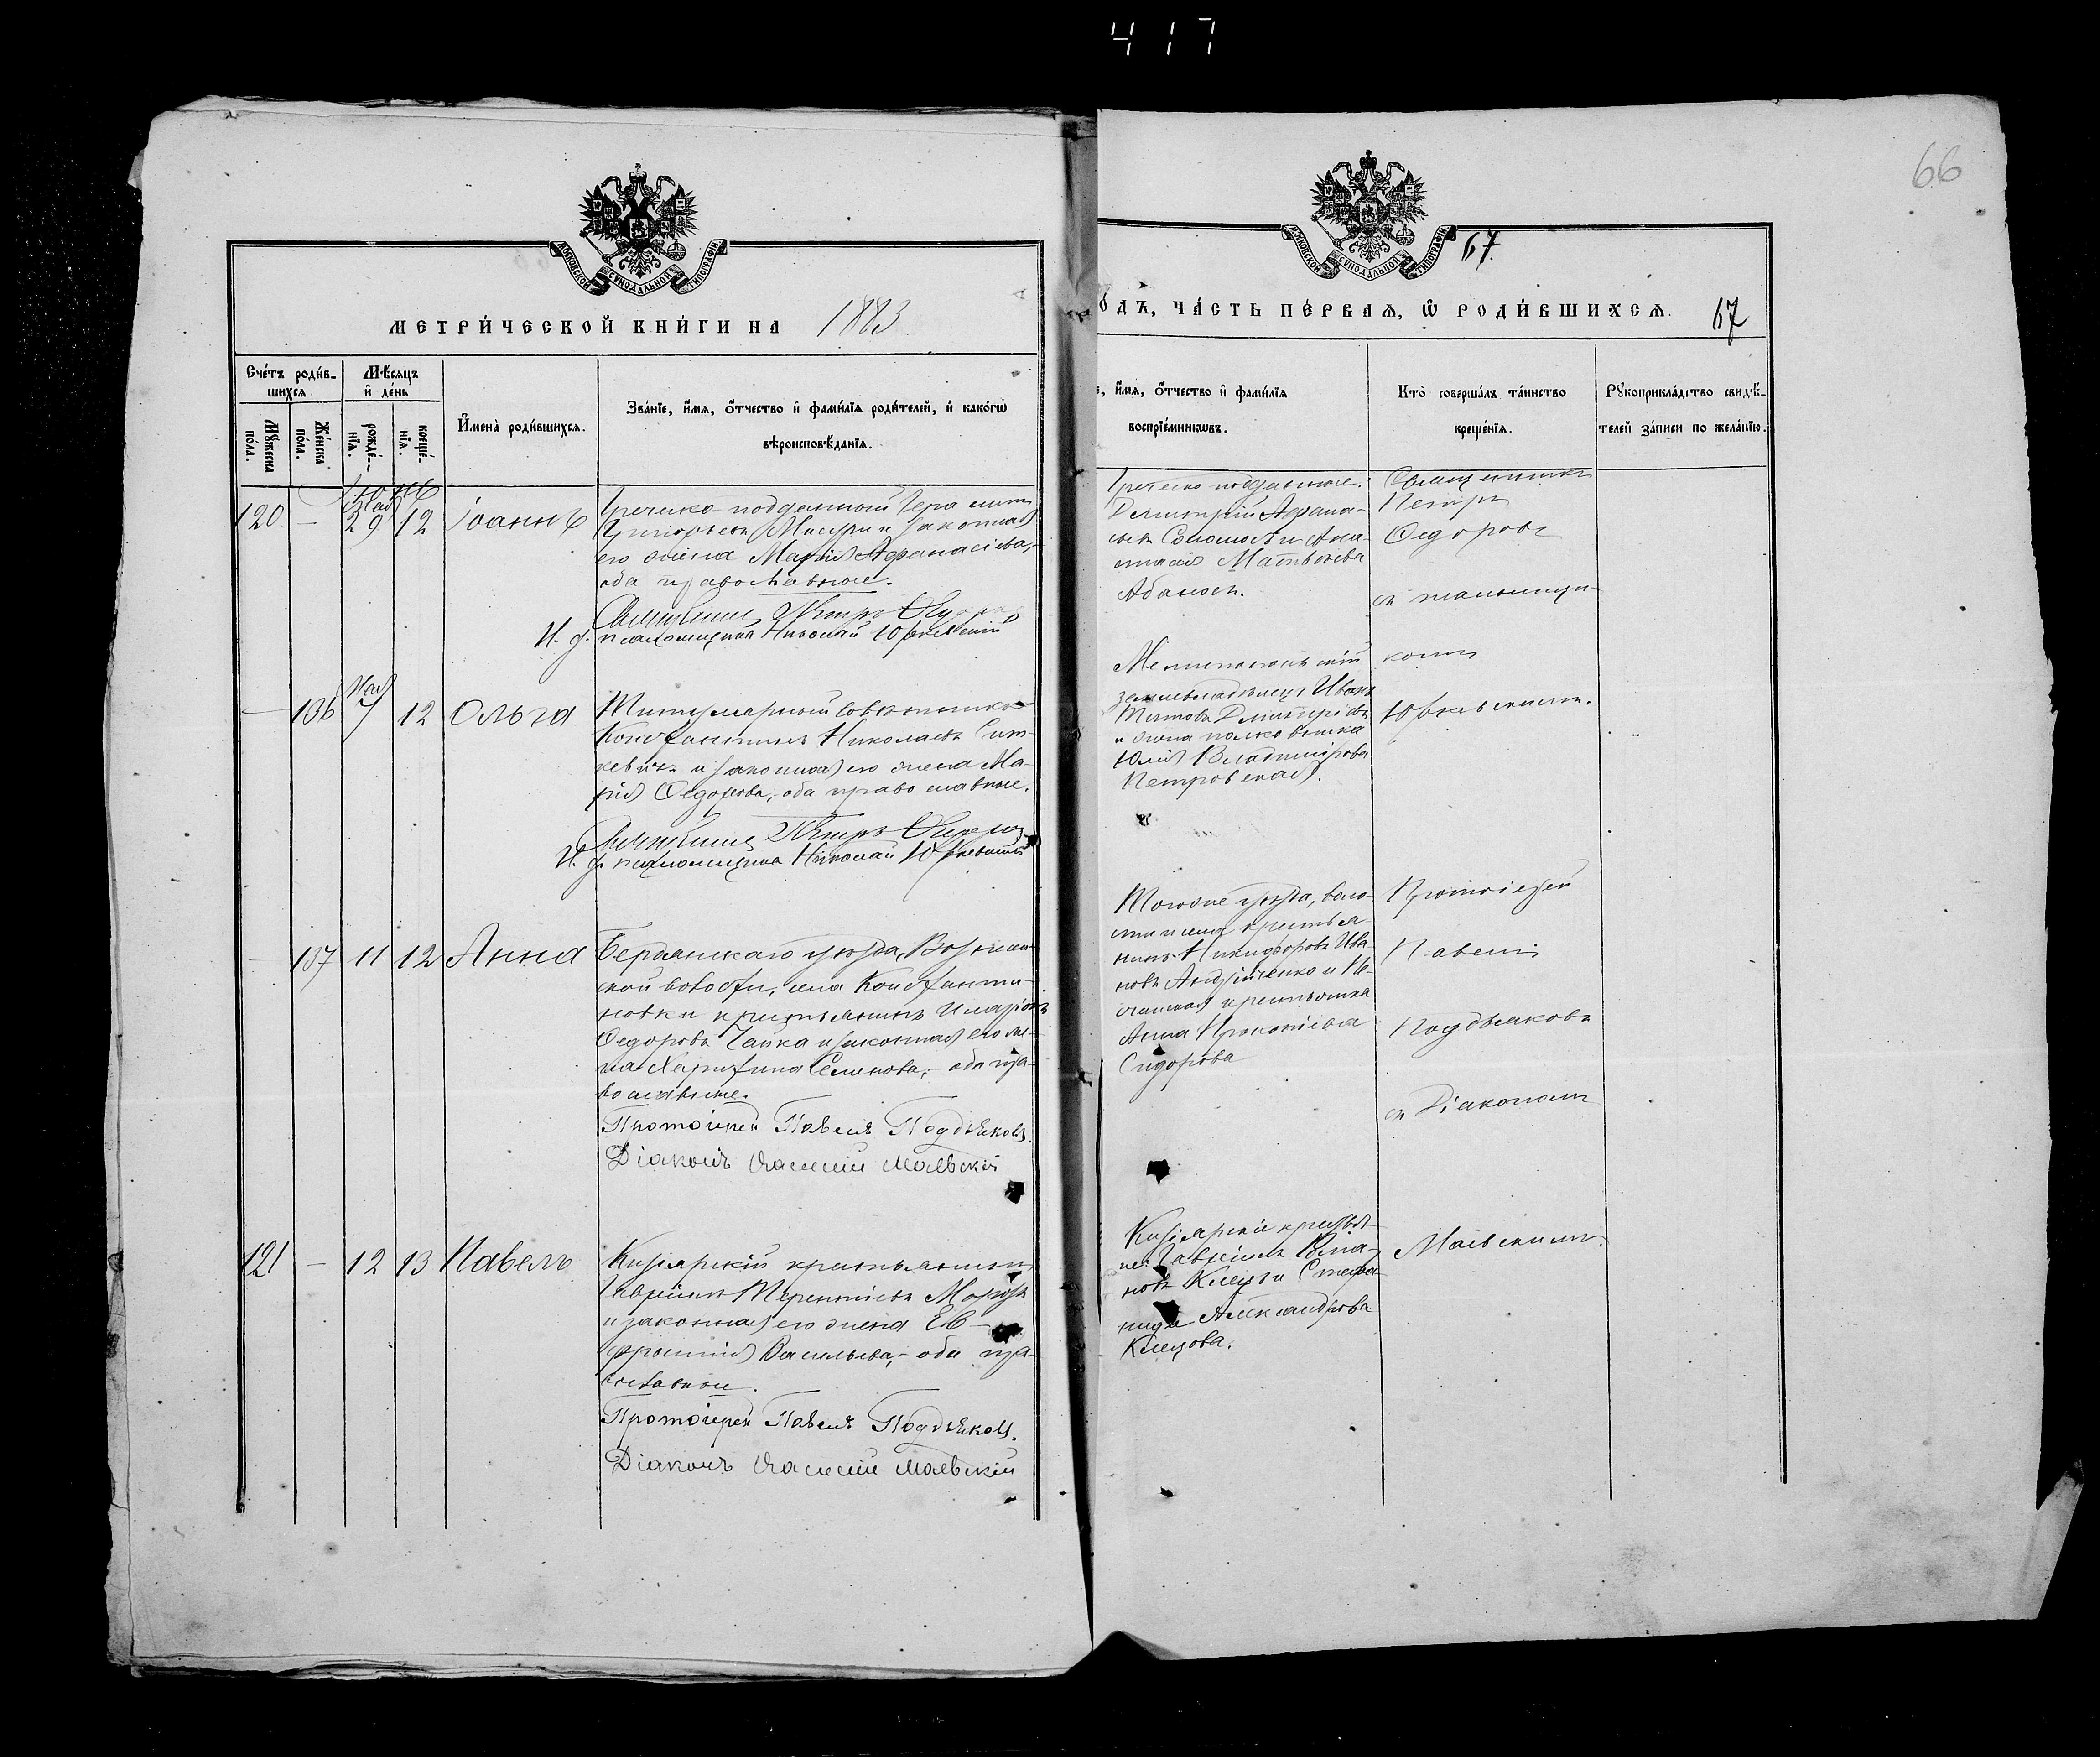 417
66
67.
МОСКОВСКОЙ СѴНОДАЛЬНОЙ ТИПОГРАФІИ
МОСКОВСКОЙ СѴНОДАЛЬНОЙ ТИПОГРАФІИ
МЕТРИ́ЧЕСКОЙ КНИ́ГИ НА 1883
О́ДЪ, ЧА́СТЬ ПЕ́РВАѦ, Ѡ҆ РОДИ́ВШИХСѦ. 67
Сче́тъ роди́в-
шихсѧ
Мꙋ́жеска по́ла.
Же́нска по́ла.
Мѣ́сѧцъ
и҆ де́нь
рожде́-нїѧ.
креще́-нїѧ.
И҆мена̀ роди́вшихсѧ.
Зва́нїе, и҆́мѧ, ѻ҆́тчество и҆ фамѝлїѧ роди́телей, и҆ како́гѡ
вѣроисповѣ́данїѧ.
е, и҆́мѧ, ѻ҆́тчество и҆ фамѝлїѧ
воспрїе́мникѡвъ.
Кто̀ соверша́лъ та́инство
креще́нїѧ.
Рꙋкоприкла́дство свидѣ́-
телей за́писи по жела́нїю.
120 — Мая 29 Іюнь 12 Іоаннъ
Греческо-подданный Герасимъ
Григорьевъ и законная
его жена Марія Афанасіева,-
оба православные.
Священникъ Петръ Ѳедоровъ
И. д. псаломщика Николай Юркевскій
Греческо подданные:
Димитрій Афана-
сьевъ
Матвѣева
Священникъ
Петръ
Ѳедоровъ
съ псаломщи-
— 136 Мая 7 12 Ольга
Титулярный совѣтникъ
Константинъ Николаевъ
и законная его жена Ма-
рія Ѳедорова, оба православные.
Священникъ Петръ Ѳедоровъ
И. д. псаломщика Николай Юркевскій
Мелитопольскій
землевладѣлецъ Иванъ
Дмитріевъ
и жена полковника
Юлія Владимірова
Петровская.
комъ
Юркевскимъ.
— 137 11 12 Анна
Бердянскаго уѣзда, Вознесен-
ской волости, села Константи-
новки крестьянинъ Иларіонъ
Ѳедоровъ Чайка и законная его же-
на Харитина Семенова,- оба пра-
вославные.
Протоіерей Павелъ Поддьяковъ.
Діаконъ Василій Маевскій
Того же уѣзда, воло-
сти и села крестья-
нинъ Никифоръ Ива-
новъ Андрійченко и
крестьянка
Анна Прокопіева
Сидорова
Протоіерей
Павелъ
Поддьяковъ
съ Діакономъ
121 — 12 13 Павелъ
Кизіярскій крестьянинъ
Гавріилъ Терентіевъ Морозъ
и законная его жена Ев-
фросинія Васильева,- оба пра-
вославные.
Протоіерей Павелъ Поддьяковъ.
Діаконъ Василій Маевскій
Кизіярскіе крестья-
не: Гавріилъ
новъ и Стефа-
нида Александрова
Маевскимъ.